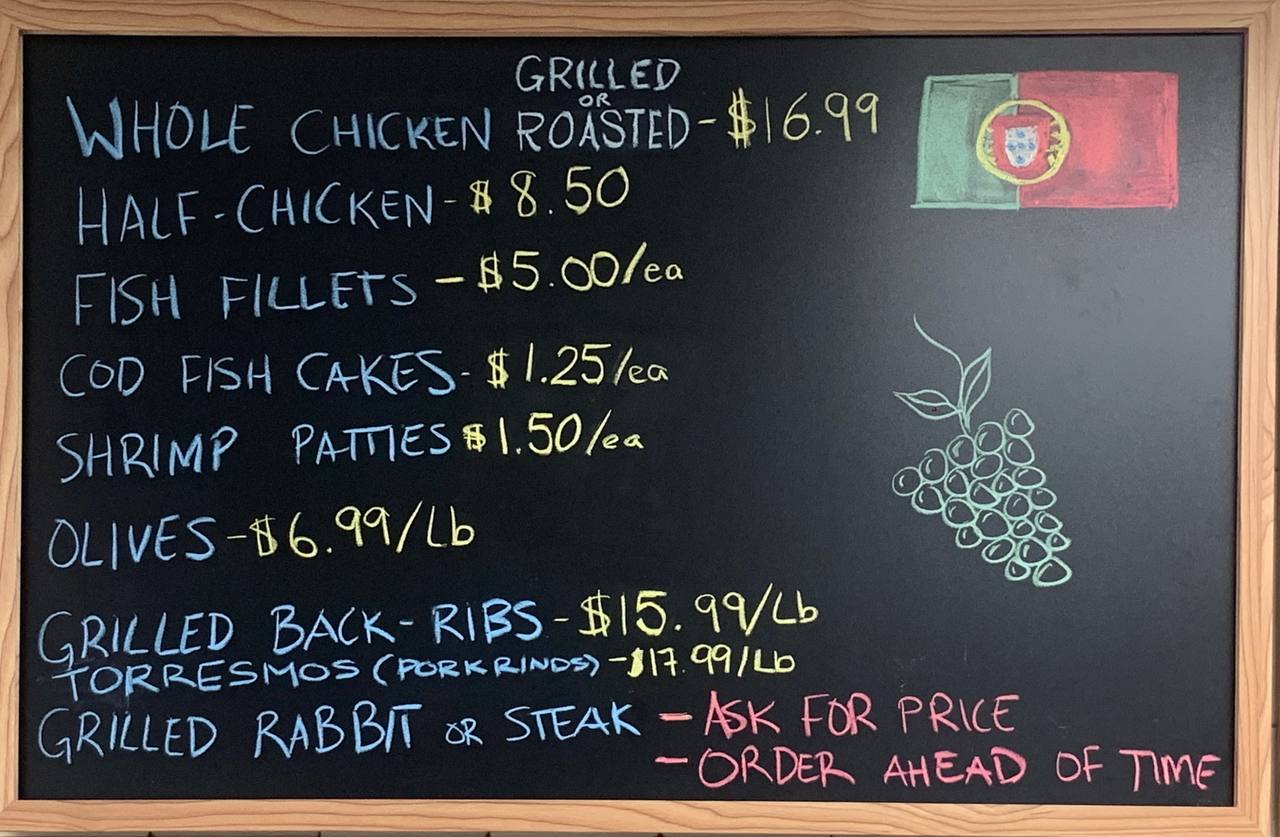 WHOLE CHICKEN GRILLED OR ROASTED - $16.99
HALF-CHICKEN - $8.50
FISH FILLETS - $5.00/ea
COD FISH CAKES - $1.25/ea
SHRIMP PATTIES $1.50/ea
OLIVES - $6.99/Lb
GRILLED BACK-RIBS - $15.99/Lb
TORRESMOS (PORK RINDS) - $17.99/Lb
GRILLED RABBIT OR STEAK - ASK FOR PRICE
- ORDER AHEAD OF TIME